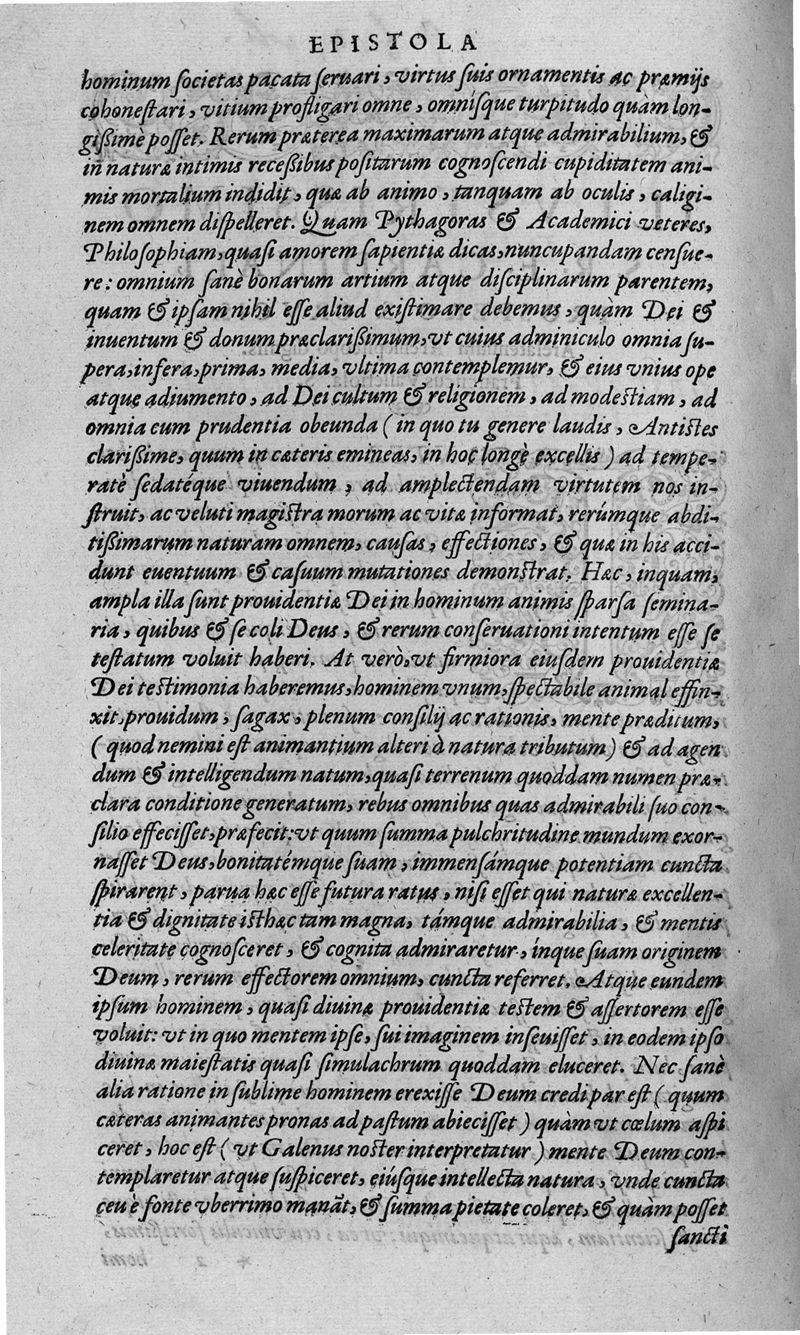 EPISTOLA
hominum ſocietas pacata ſeruari, virtus ſuis ornamentis ac præmijs
cohoneſtari, vitium profligari omne, omníſque turpitudo quàm lon-
gißimè poſſet. Rerum præterea maximarum atque admirabilium, &
in naturæ intimis receßibus poſitarum cognoſcendi cupiditatem ani-
mis mortalium indidit, quæ ab animo, tanquam ab oculis, caligi-
nem omnem diſpelleret. Quam Pythagoras & Academici veteres,
Philoſophiam, quaſi amorem ſapientiæ dicas, nuncupandam cenſue-
re: omnium ſanè bonarum artium atque diſciplinarum parentem,
quam & ipſam nihil eſſe aliud exiſtimare debemus, quàm Dei &
inuentum & donum præclarißimum, vt cuius adminiculo omnia ſu-
pera, infera, prima, media, vltima contemplemur, & eius vnius ope
atque adiumento, ad Dei cultum & religionem, ad modeſtiam, ad
omnia cum prudentia obeunda (in quo tu genere laudis, Antiſtes
clarißime, quum in cæteris emineas, in hoc longè excellis) ad tempe-
ratè ſedatéque viuendum, ad amplectendam virtutem nos in-
ſtruit, ac veluti magiſtra morum ac vitæ informat, rerúmque abdi-
tißimarum naturam omnem, cauſas, effectiones, & quæ in his acci-
dunt euentuum & caſuum mutationes demonſtrat. Hæc, inquam,
ampla illa ſunt prouidentiæ Dei in hominum animis ſparſa ſemina-
ria, quibus & ſe coli Deus, & rerum conſeruationi intentum eſſe ſe
teſtatum voluit haberi. At verò, vt firmiora eiuſdem prouidentiæ
Dei teſtimonia haberemus, hominem vnum, ſpectabile animal effin-
xit, prouidum, ſagax, plenum conſilij ac rationis, mente præditum,
(quod nemini eſt animantium alteri à natura tributum) & ad agen
dum & intelligendum natum, quaſi terrenum quoddam numen præ-
clara conditione generatum, rebus omnibus quas admirabili ſuo con-
ſilio effeciſſet, præfecit: vt quum ſumma pulchritudine mundum exor-
naſſet Deus, bonitatémque ſuam, immenſámque potentiam cuncta
ſpirarent, parua hæc eſſe futura ratus, niſi eſſet qui naturæ excellen-
tia & dignitate iſthæc tam magna, támque admirabilia, & mentis
celeritate cognoſceret, & cognita admiraretur, ínque ſuam originem
Deum, rerum effectorem omnium, cuncta referret. Atque eundem
ipſum hominem, quaſi diuinæ prouidentiæ teſtem & aſſertorem eſſe
voluit: vt in quo mentem ipſe, ſui imaginem inſeuiſſet, in eodem ipſo
diuinæ maieſtatis quaſi ſimulachrum quoddam eluceret. Nec ſanè
alia ratione in ſublime hominem erexiſſe Deum credi par eſt (quum
cæteras animantes pronas ad paſtum abieciſſet) quàm vt cœlum aſpi
ceret, hoc eſt (vt Galenus noſter interpretatur) mente Deum con-
templaretur atque ſuſpiceret, eiúſque intellecta natura, vnde cuncta
ceu è fonte vberrimo manãt, & ſumma pietate coleret, & quàm poſſet
ſancti